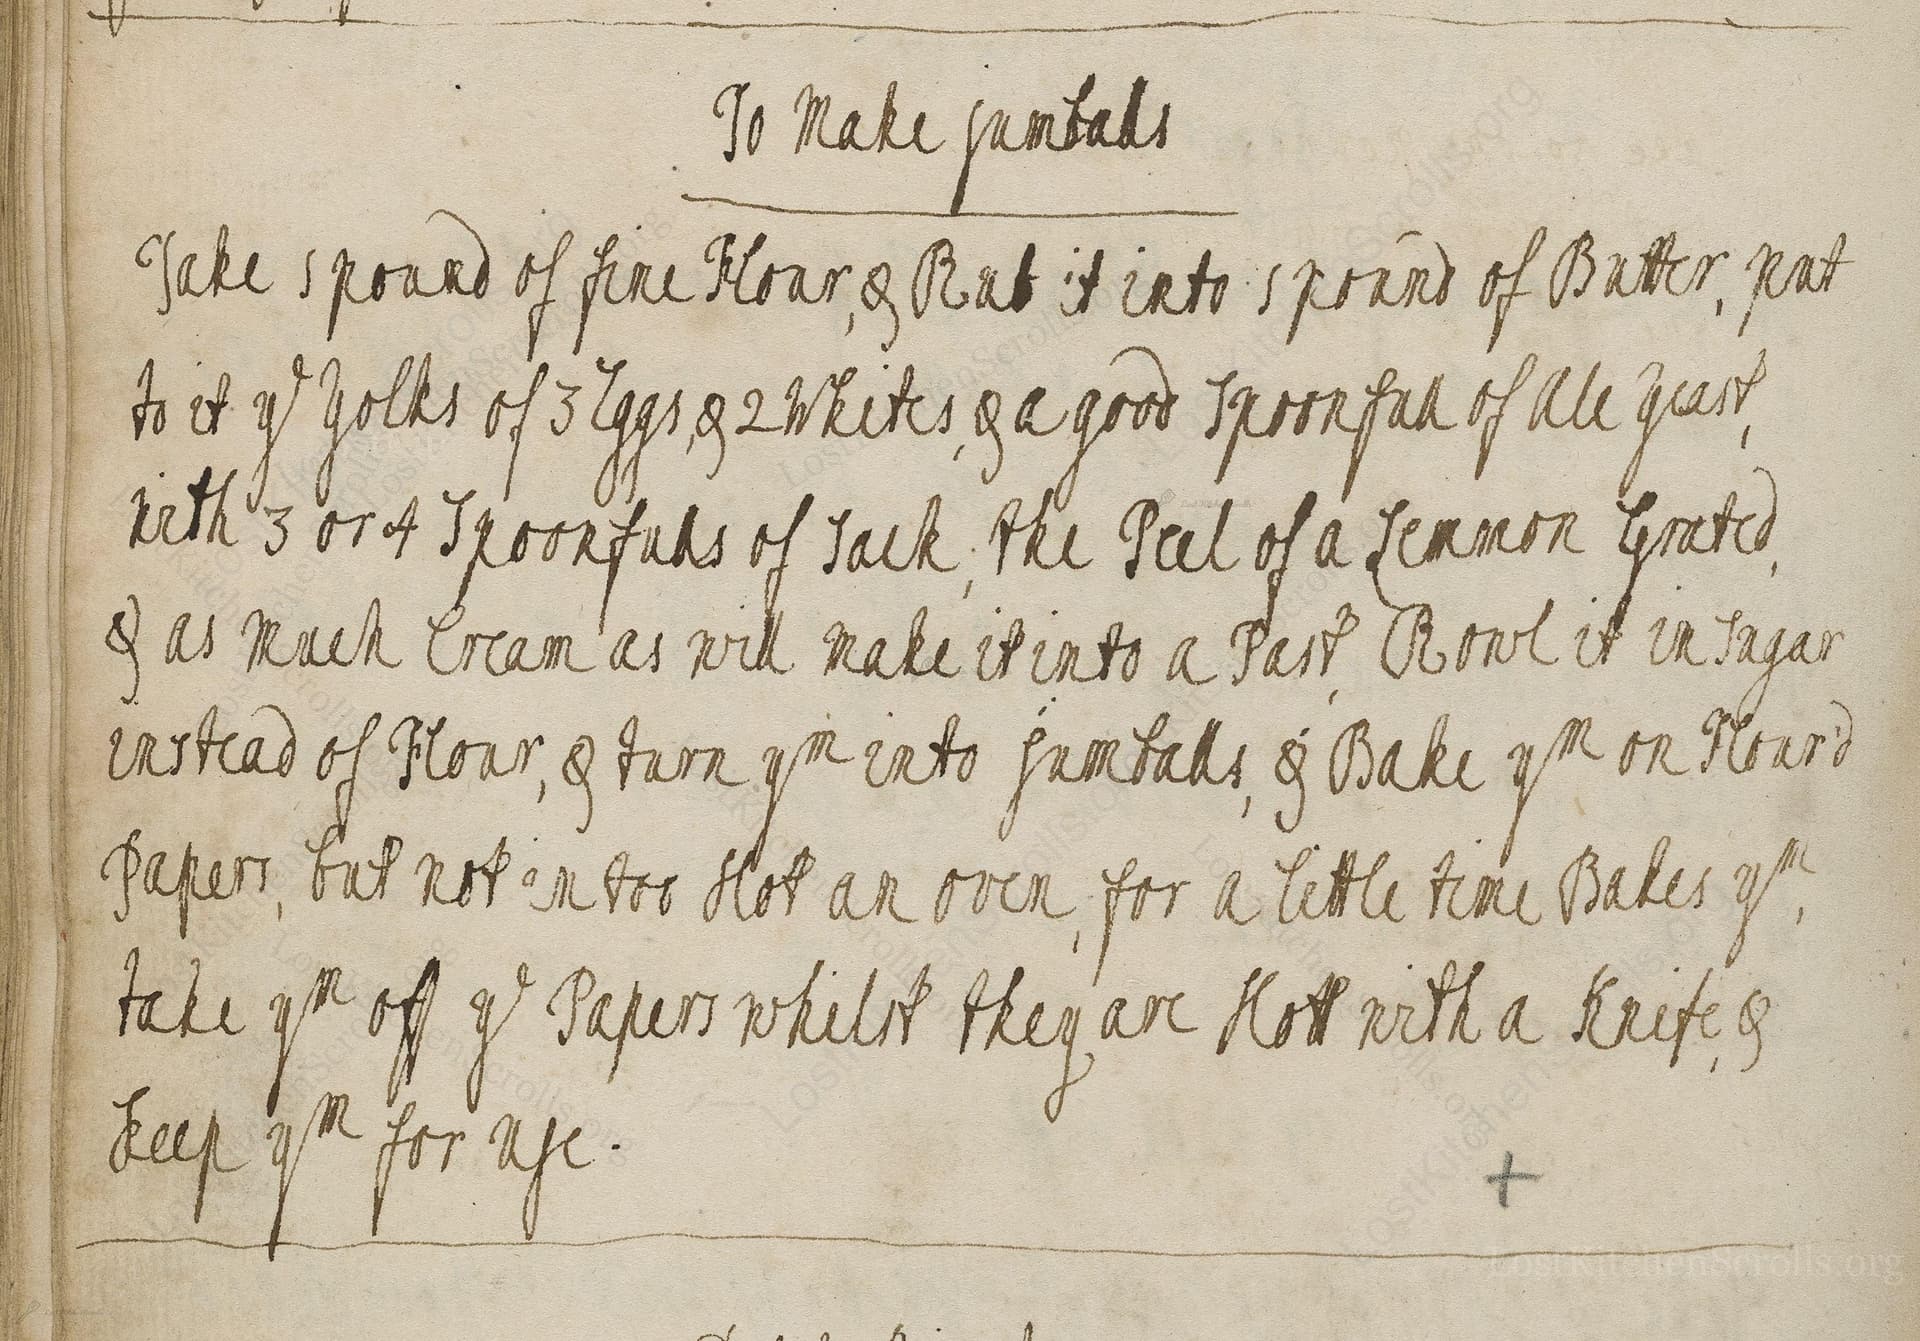 To Make jumballs
Take 1 pound of fine Flour, & Rub it into 1 pound of Butter, put
to it yᵉ Yolks of 3 Eggs, & 2 Whites, & a good Spoonfull of Ale Yeast,
with 3 or 4 Spoonfulls of Sack, the Peel of a Lemmon Grated,
& as Much Cream as will make it into a Past, Rowl it in Sugar
instead of Flour, & turn yᵐ into jumballs, & Bake yᵐ on Flour'd
Papers, but not in too Hot an oven, for a little time Bakes yᵐ,
take yᵐ off yᵉ Papers whilst they are Hott with a Knife, &
keep yᵐ for use.
+
LostKitchenScrolls.org